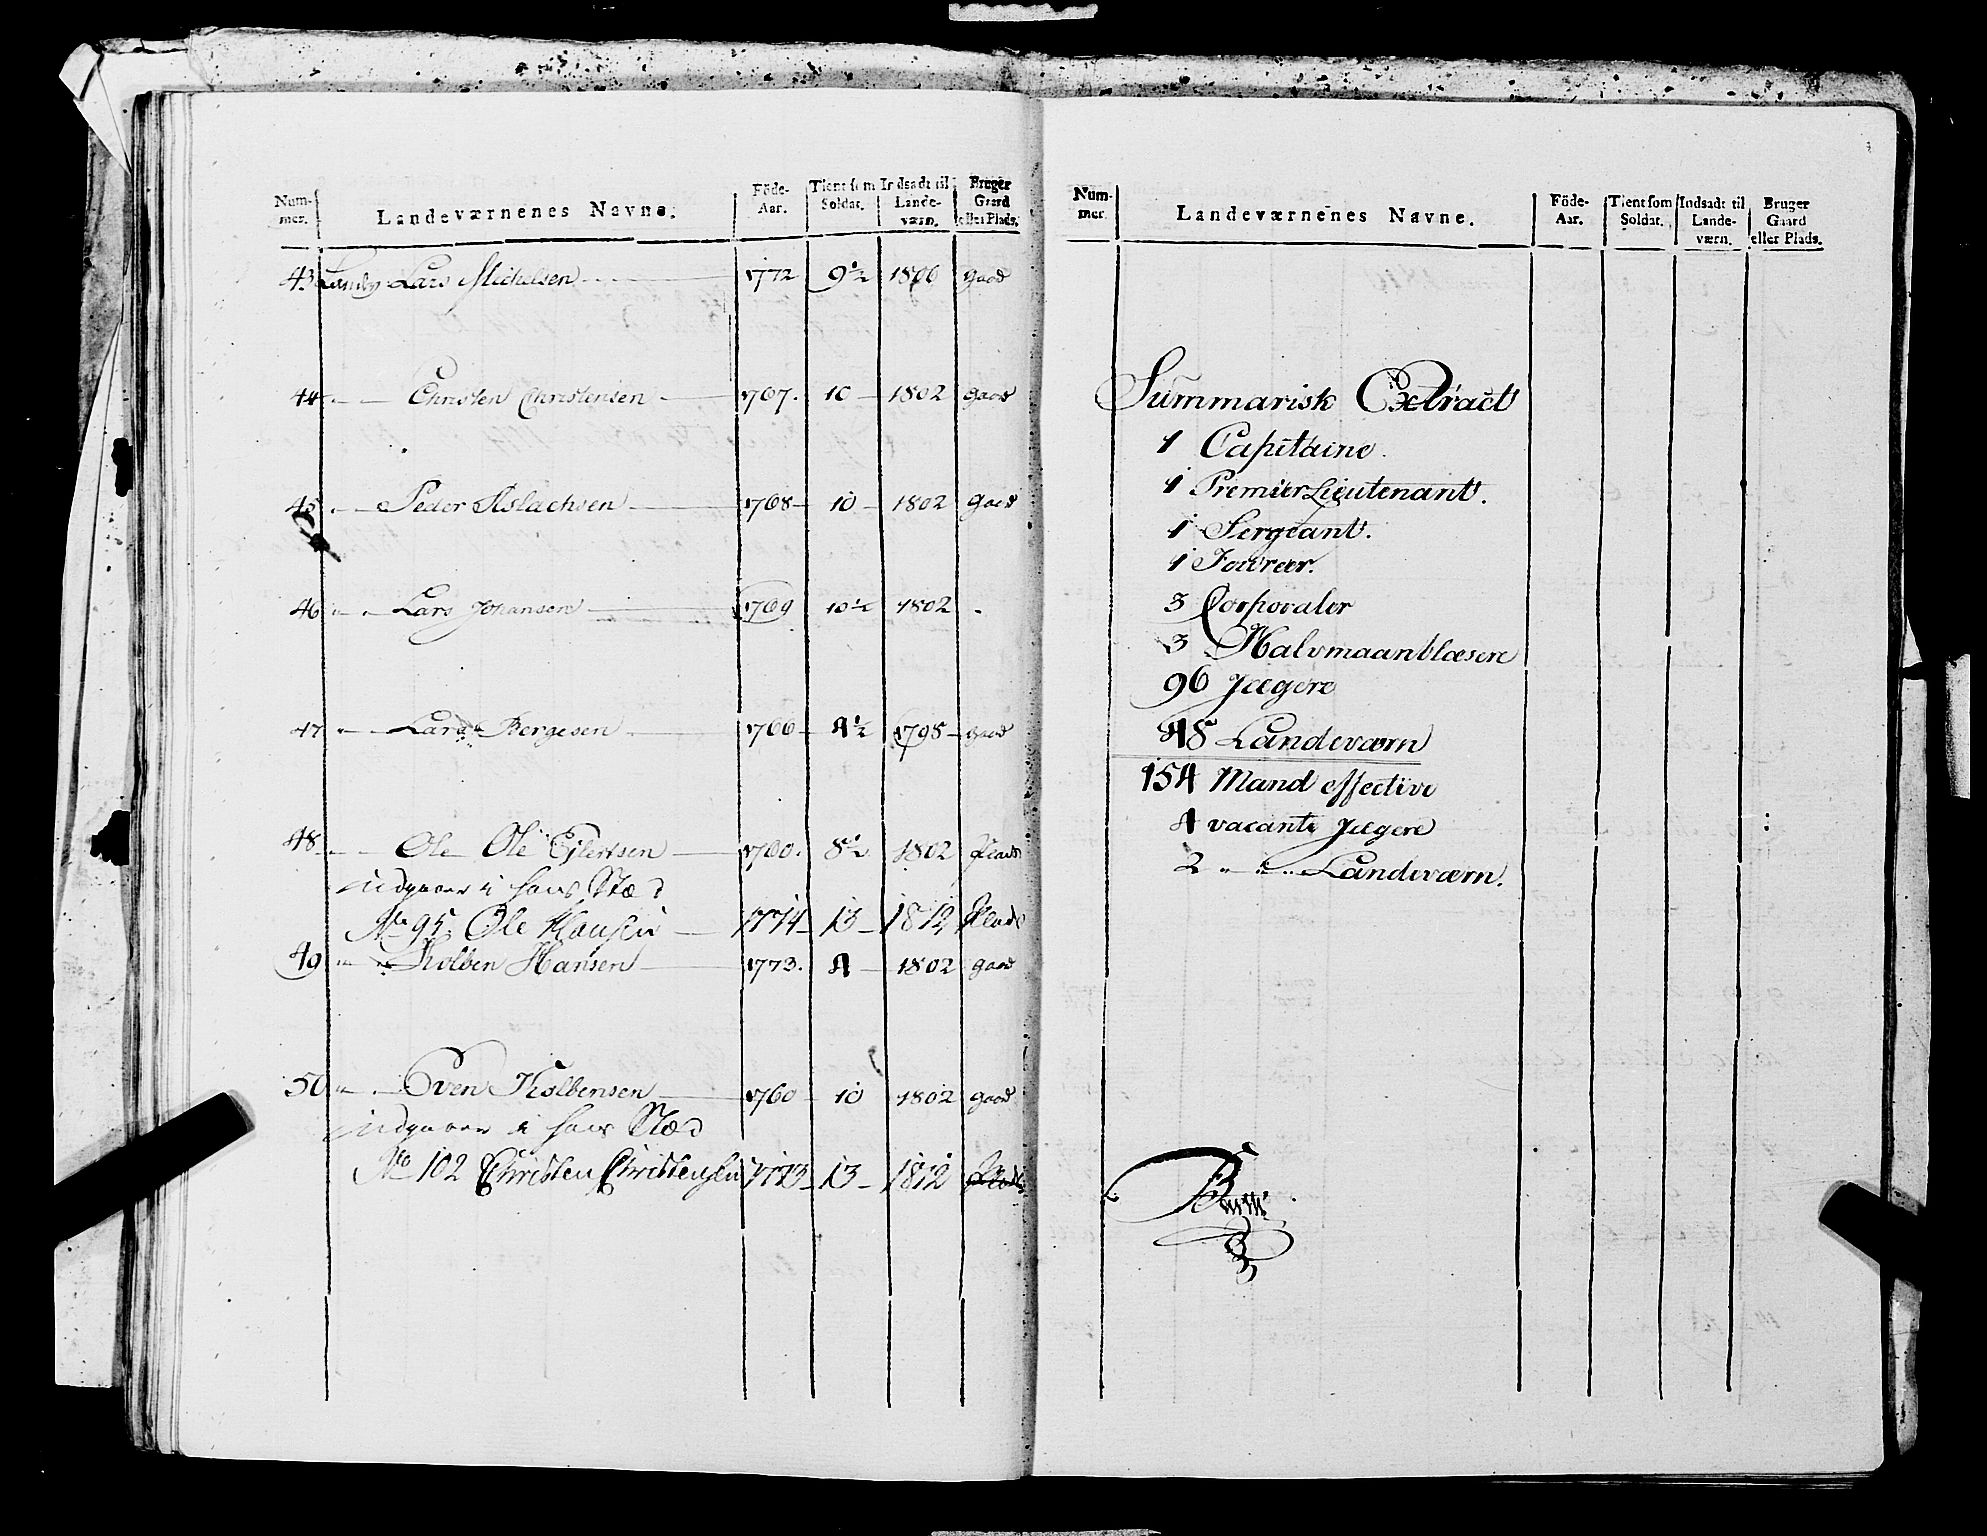 Num-
mer.
Landeværnenes Navne.
Föde-
Aar.
Tient som
Soldat.
Indsadt til
Lande-
værn.
Bruger
Gaard
eller Plads.
43 Landv. Lars Michelsen 1772 9½ 1806 gaard
44 " Christen Christensen 1767. 10 1802 gaard
45 " Peder Aslachsen 1768 10 1802 gaard
46 " " Lars Johansen 1769 10½ 1802 "
47 " Lars Bergesen 1766 4½ 1798 gaard
48 " Ole Ole Ejlertsen 1760. 8½ 1802 Plads
indgaaer i hans Stæd
No 95 Ole Hansen 1774 13 1812 Plads
49 " " Kolben Hansen 1773. 4 1802 gaard
50 " Even Kolbensen 1760 10 1802 gaard
indgaaer i hans Stæd
No 102 Christen Christensen 1773 13 1812 Plads
Num-
mer.
Landeværnenes Navne.
Föde-
Aar.
Tient som
Soldat.
Indsadt til
Lande-
værn.
Bruger
Gaard
eller Plads.
Summarisk Extract
1 Capitaine.
1 Premier Lieutenant.
1 Sergeant.
1 Foureer.
3 Corporaler
3 Halvmaanblæsere
96 Jægere
48 Landeværn
154 Mand effective
4 vacante Jægere
2 " " Landeværn.